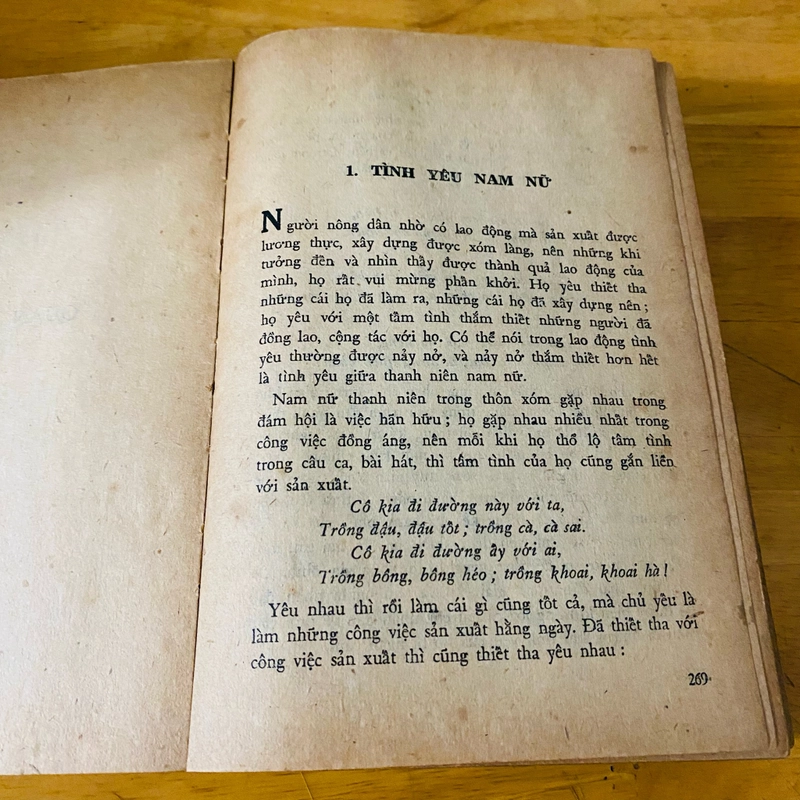 1. TÌNH YÊU NAM NỮ
Người nông dân nhờ có lao động mà sản xuất được
lương thực, xây dựng được xóm làng, nên những khi
tưởng đến và nhìn thấy được thành quả lao động của
mình, họ rất vui mừng phấn khởi. Họ yêu thiết tha
những cái họ đã làm ra, những cái họ đã xây dựng nên ;
họ yêu với một tấm tình thắm thiết những người đã
đồng lao, cộng tác với họ. Có thể nói trong lao động tình
yêu thường được nảy nở, và nảy nở thắm thiết hơn hết
là tình yêu giữa thanh niên nam nữ.
Nam nữ thanh niên trong thôn xóm gặp nhau trong
đám hội là việc hãn hữu ; họ gặp nhau nhiều nhất trong
công việc đồng áng, nên mỗi khi họ thổ lộ tâm tình
trong câu ca, bài hát, thì tấm tình của họ cũng gắn liền
với sản xuất.
Cô kia đi đường này với ta,
Trồng đậu, đậu tốt ; trồng cà, cà sai.
Cô kia đi đường ấy với ai,
Trồng bông, bông héo ; trồng khoai, khoai hà !
Yêu nhau thì rồi làm cái gì cũng tốt cả, mà chủ yếu là
làm những công việc sản xuất hằng ngày. Đã thiết tha với
công việc sản xuất thì cũng thiết tha yêu nhau :
269